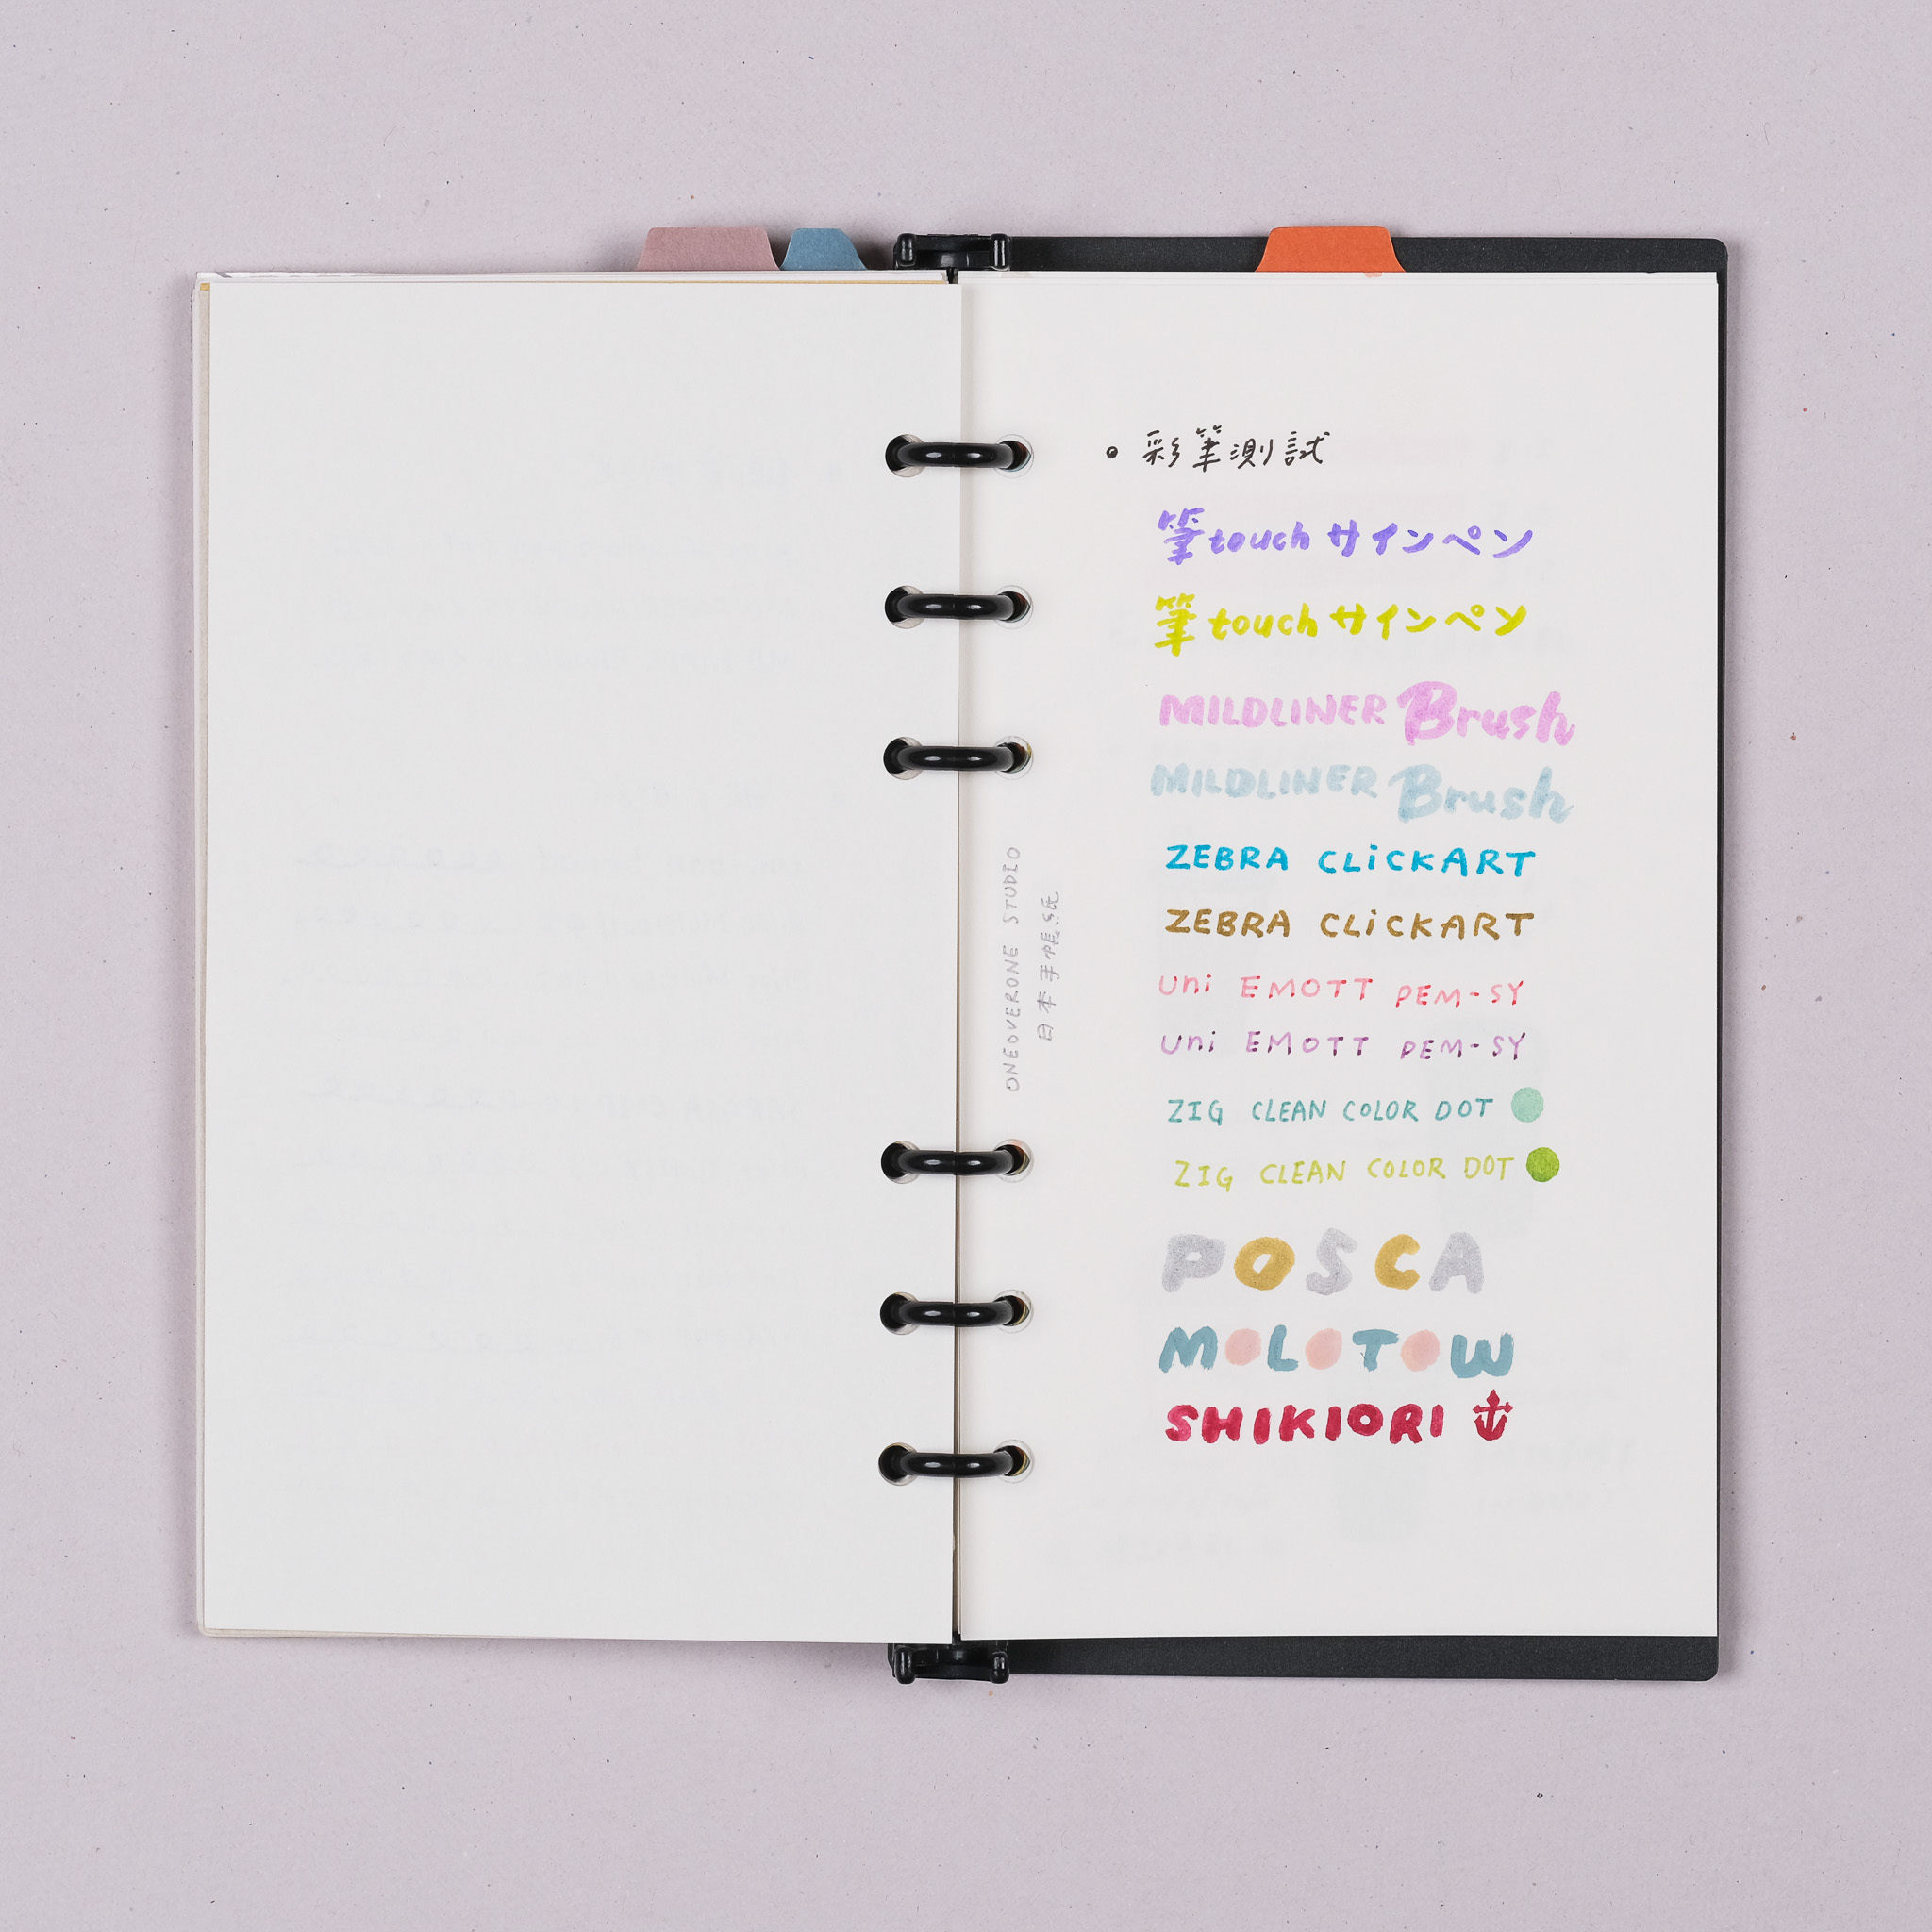 • 彩筆測試
筆touch サインペン
筆touch サインペン
MILDLINER Brush
MILDLINER Brush
ZEBRA CLiCKART
ZEBRA CLiCKART
uni EMOTT PEM-SY
uni EMOTT PEM-SY
ZIG CLEAN COLOR DOT
ZIG CLEAN COLOR DOT
POSCA
MOLOTOW
SHIKIORI
ONEOVERONE STUDIO
日本手帳紙